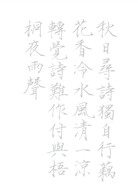 秋日尋詩獨自行藕
花香冷水風清一涼
轉覺詩難作付與梧
桐夜雨聲